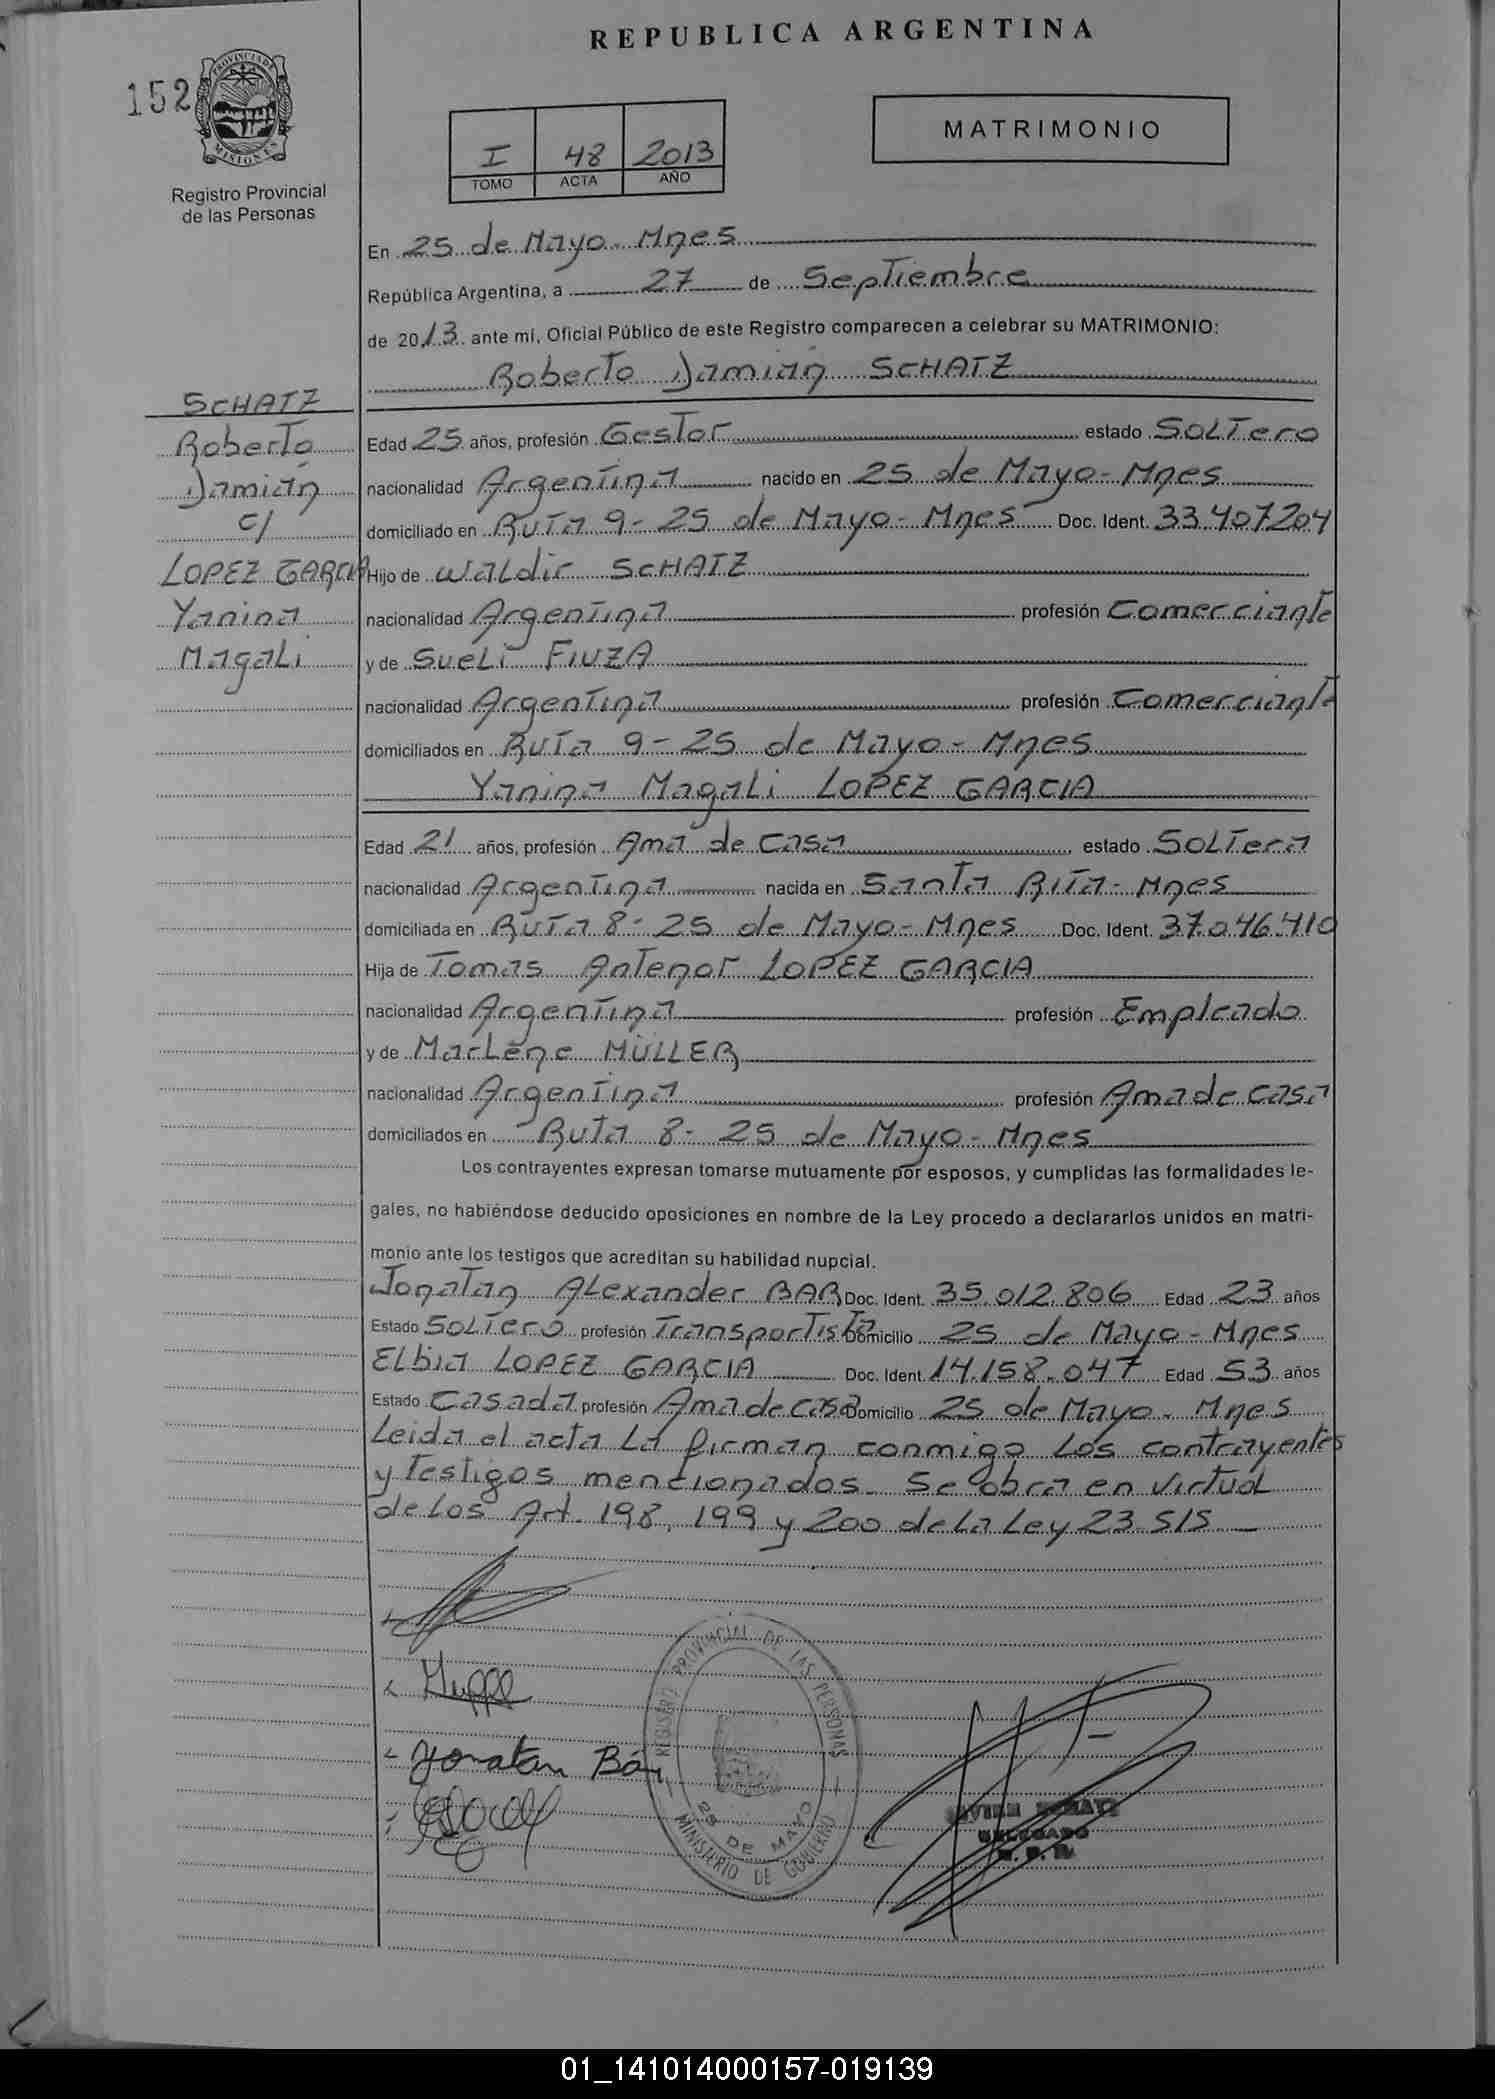 REPUBLICA ARGENTINA
152
PROVINCIA DE
MISIONES
Registro Provincial
de las Personas
I 48 2013
TOMO ACTA AÑO
MATRIMONIO
En 25 de Mayo - Mnes
República Argentina, a 27 de Septiembre
de 2013 ante mi, Oficial Público de este Registro comparecen a celebrar su MATRIMONIO:
Roberto Damián SCHATZ
SCHATZ
Roberto
Damián
c/
LOPEZ GARCIA
Yanina
Magali
Edad 25 años, profesión Gestor estado Soltero
nacionalidad Argentina nacido en 25 de Mayo - Mnes
domiciliado en Ruta 9 - 25 de Mayo - Mnes Doc. Ident. 33.407.204
Hijo de Waldir SCHATZ
nacionalidad Argentina profesión Comerciante
y de Sueli FIUZA
nacionalidad Argentina profesión Comerciante
domiciliados en Ruta 9 - 25 de Mayo - Mnes
Yanina Magali LOPEZ GARCIA
Edad 21 años, profesión Ama de Casa estado Soltera
nacionalidad Argentina nacida en Santa Rita - Mnes
domiciliada en Ruta 8 - 25 de Mayo - Mnes Doc. Ident. 37.046.410
Hija de Tomas Antenor LOPEZ GARCIA
nacionalidad Argentina profesión Empleado
y de Marlene MÜLLER
nacionalidad Argentina profesión Ama de casa
domiciliados en Ruta 8 - 25 de Mayo - Mnes
Los contrayentes expresan tomarse mutuamente por esposos, y cumplidas las formalidades le-
gales, no habiéndose deducido oposiciones en nombre de la Ley procedo a declararlos unidos en matri-
monio ante los testigos que acreditan su habilidad nupcial.
Jonatan Alexander BAR Doc. Ident. 35.012.806 Edad 23 años
Estado Soltero profesión Transportista Domicilio 25 de Mayo - Mnes
Elbia LOPEZ GARCIA Doc. Ident. 14.158.047 Edad 53 años
Estado Casada profesión Ama de casa Domicilio 25 de Mayo - Mnes
Leida el acta la firman conmigo los contrayentes
y testigos mencionados. Se obra en virtud
de los Art. 198, 199 y 200 de la Ley 23.515
Jonatan Bár
REGISTRO PROVINCIAL DE LAS PERSONAS
25 DE MAYO
MINISTERIO DE GOBIERNO
DELEGADO
01_141014000157-019139